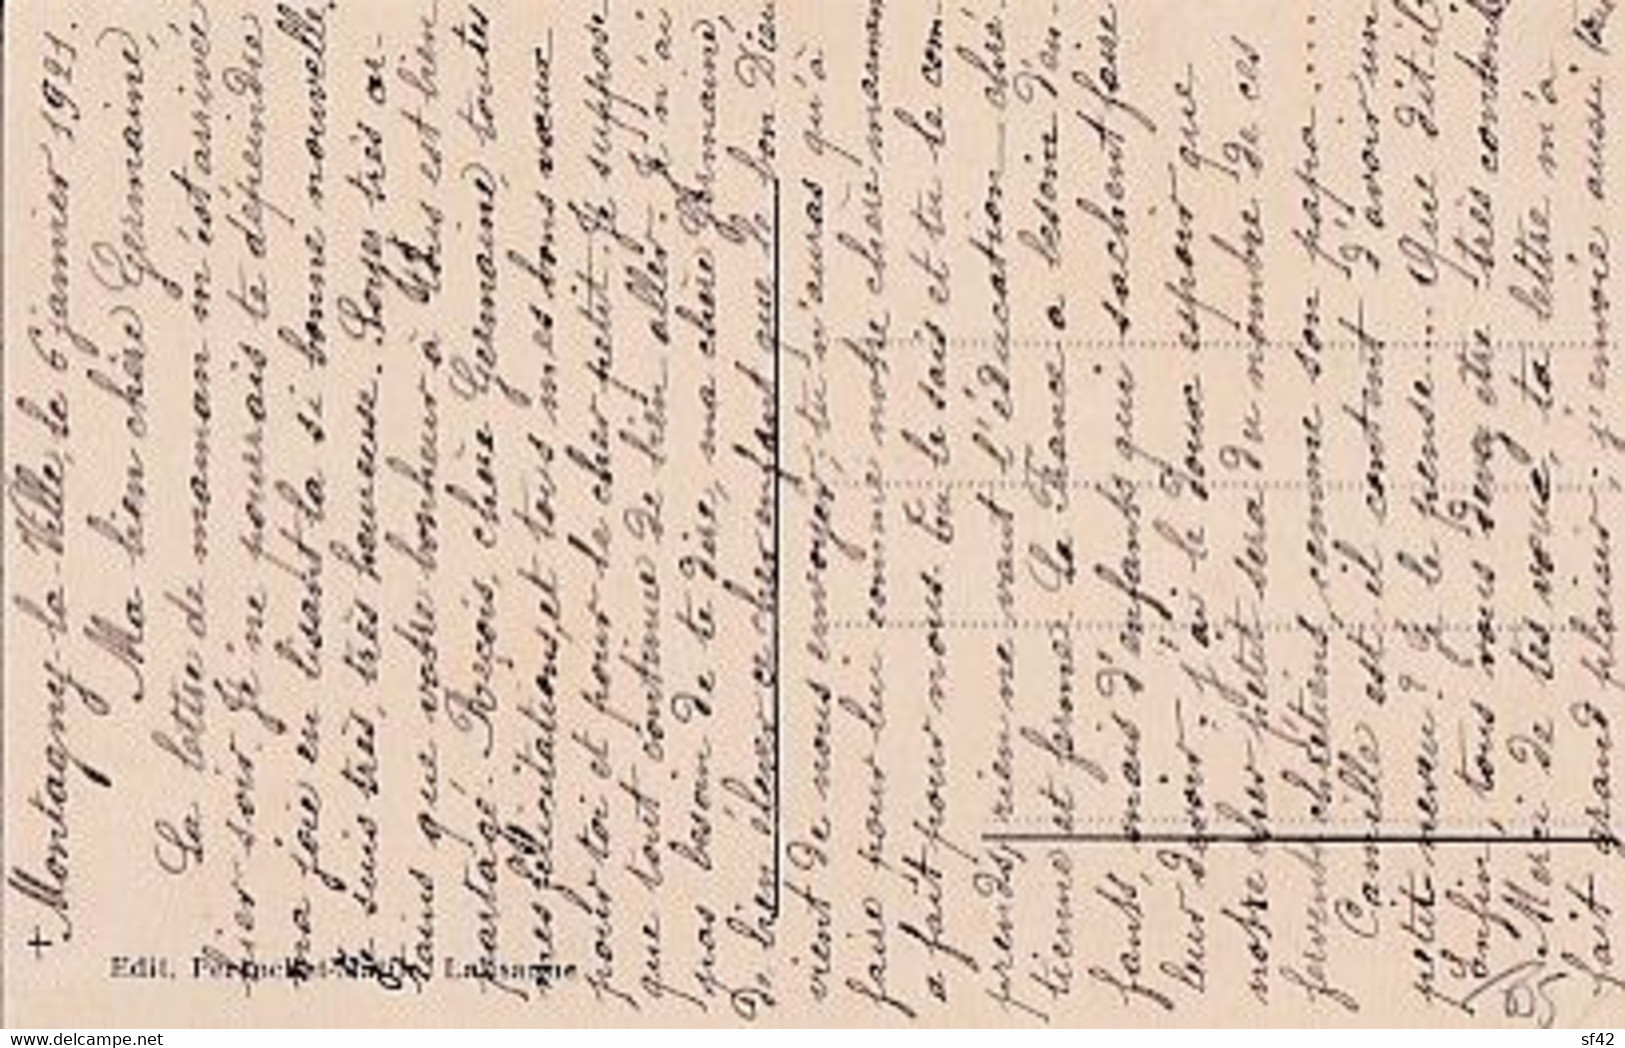 + Montagny-la-Ville, le 6 janvier 1921.
Ma bien chère Germaine,
La lettre de maman m'est arrivée
hier soir. Je ne pourrais te dépeindre
ma joie en lisant la si bonne nouvelle.
Je suis très, très heureuse. Soyez très cer-
tains que votre bonheur à tous est bien
partagé. Reçois, chère Germaine, toutes
mes félicitations, et tous mes bons vœux
pour toi et pour le cher petit. Je suppose
que tout continue de bien aller. Je n'ai
pas besoin de te dire, ma chère Germaine,
de bien élever ce cher enfant que le bon Dieu
vient de nous envoyer, tu n'auras qu'à
faire pour lui comme notre chère maman
a fait pour nous. Tu le sais et tu le com-
prends, rien ne vaut l'éducation chré-
tienne et ferme. La France a besoin d'en-
fants, mais d'enfants qui sachent faire
leur devoir. J'ai le doux espoir que
notre cher petit sera du nombre de ces
fervents chrétiens, comme son papa....
Camille est-il content d'avoir un
petit neveu? Je le pense.... Que dit-il?
Enfin tous vous devez être très contents.
Merci de tes vœux, ta lettre m'a
fait grand plaisir. j'envoie aussi
Edit. Perrochet-Matile, Lausanne
delcampe.net
sf42